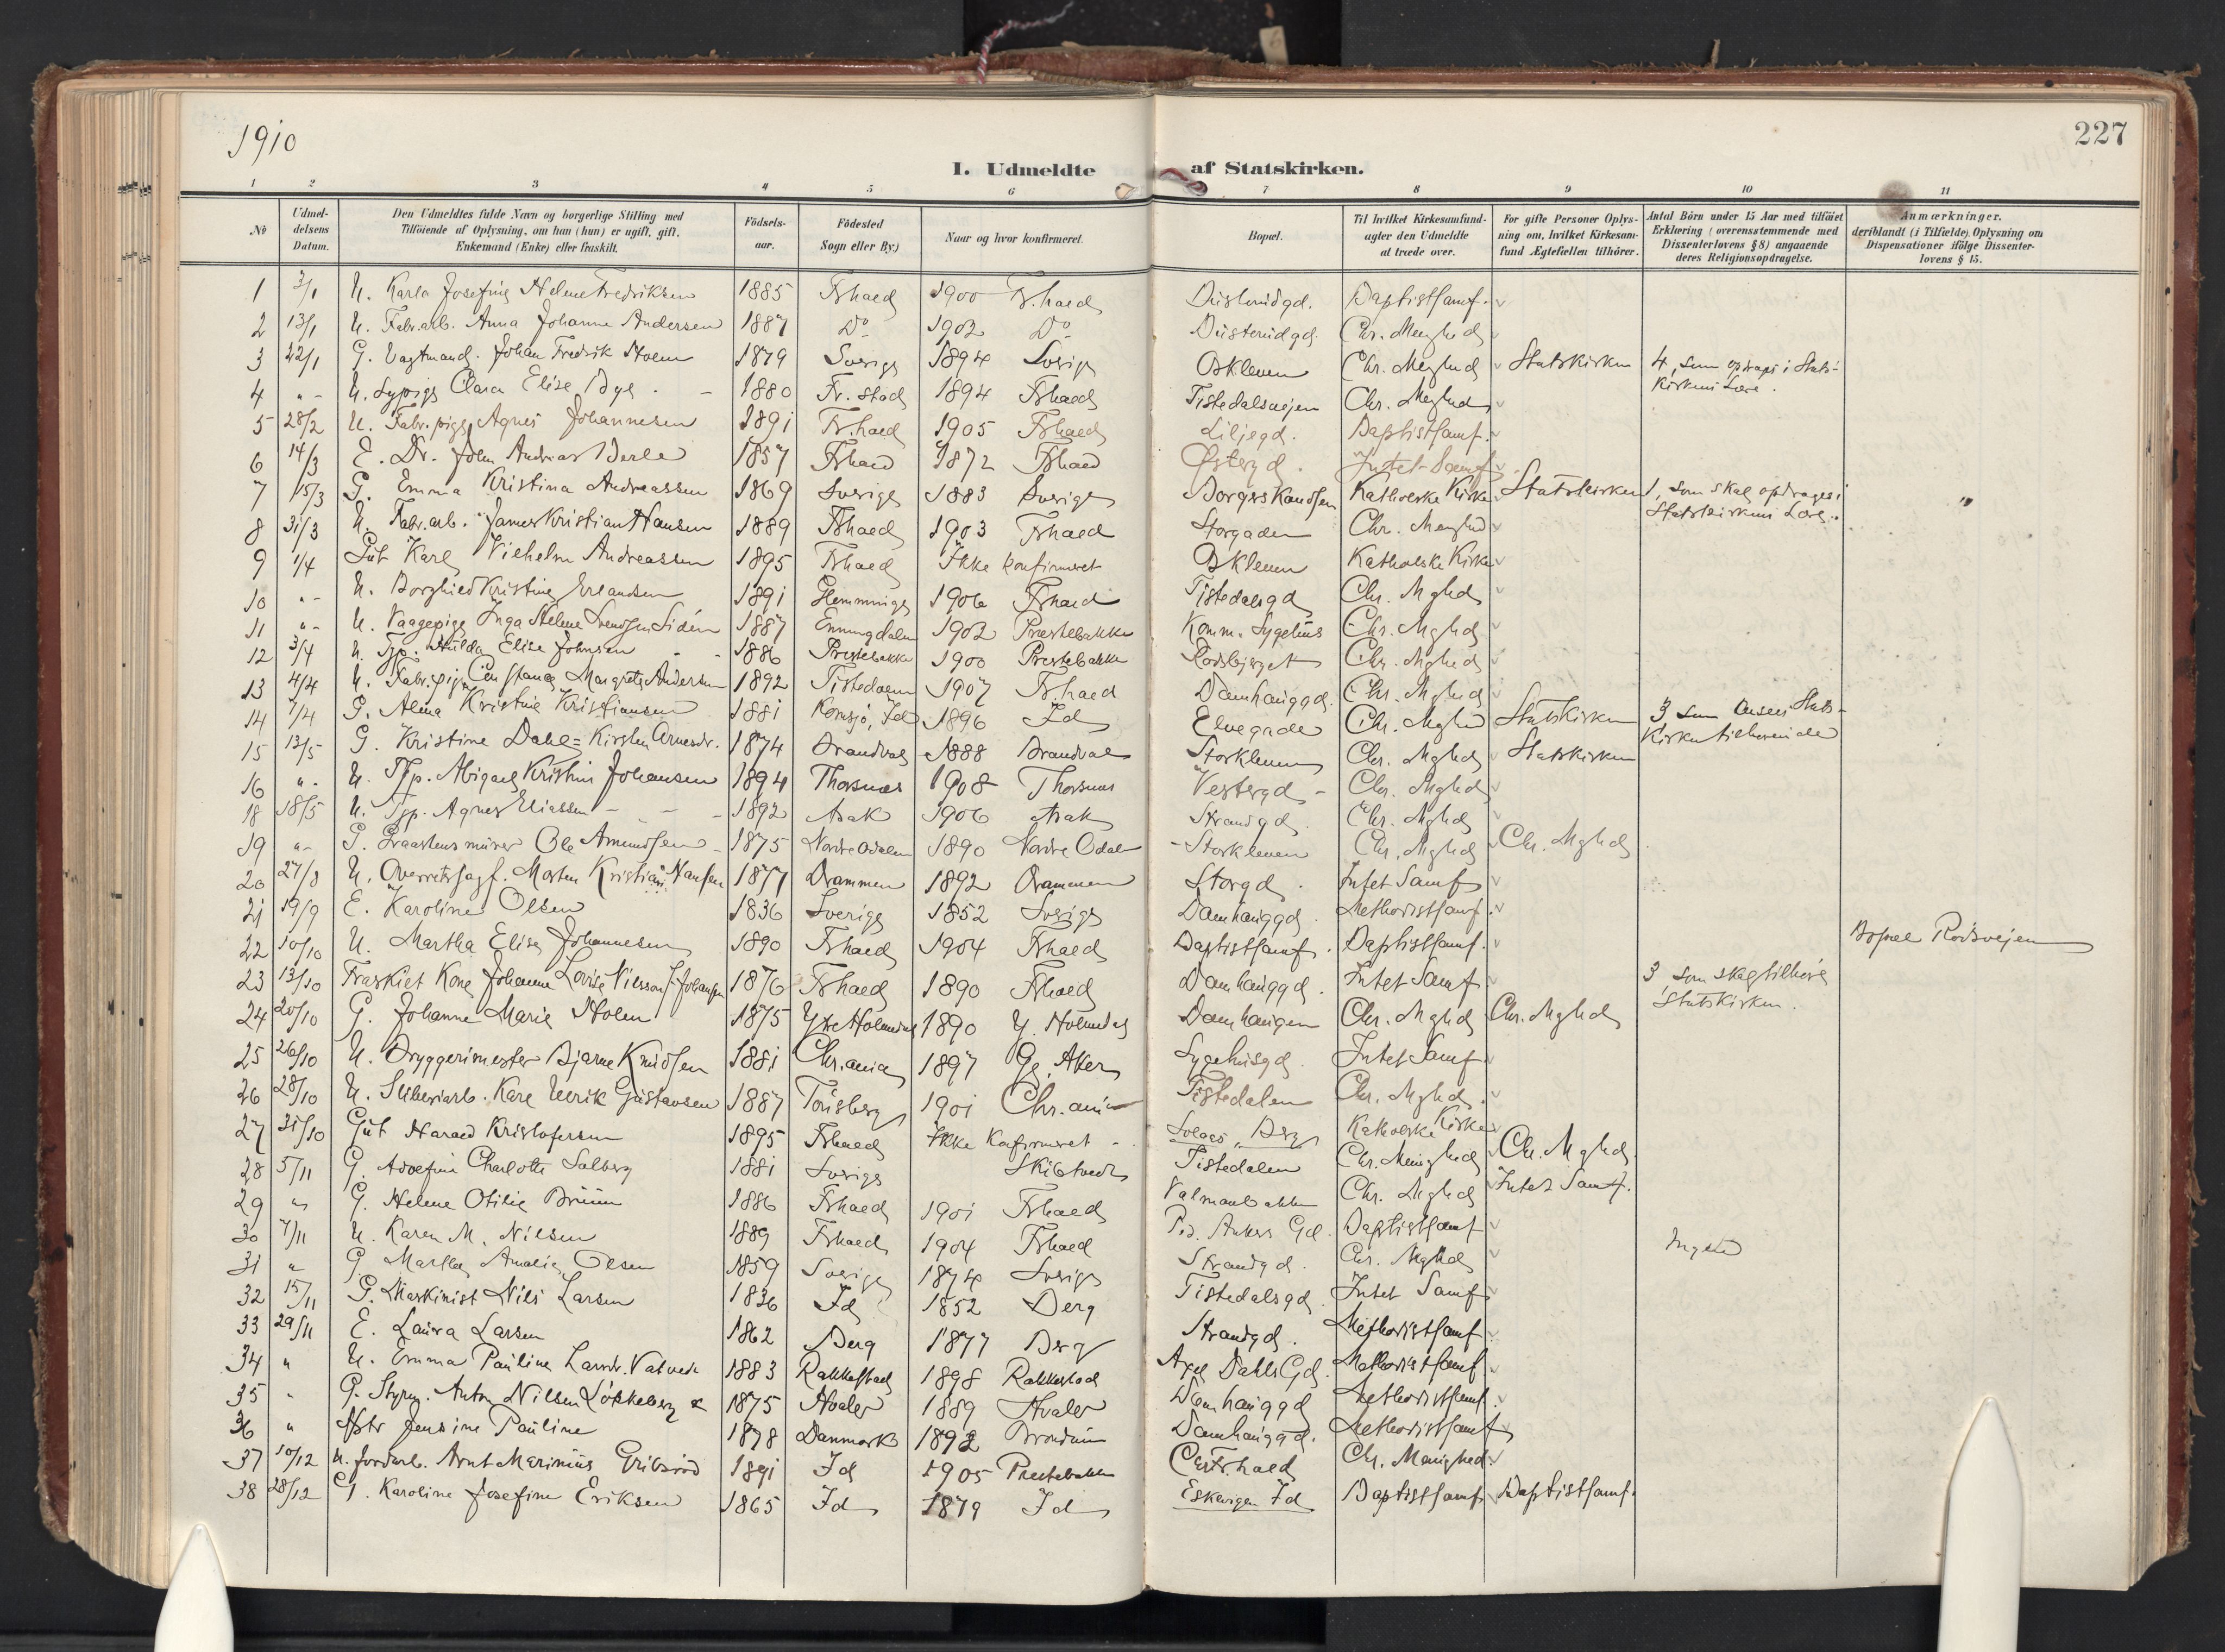 1910
227
I. Udmeldte af Statskirken.
1 2 3 4 5 6 7 8 9 10 11
No
Udmel-
delsens
Datum.
Den Udmeldtes fulde Navn og borgerlige Stilling med
Tilföiende af Oplysning, om han (hun) er ugift, gift,
Enkemand (Enke) eller fraskilt.
Födsels-
aar.
Födested
Sogn eller By.)
Naar og hvor konfirmeret.
Bopæl.
Til hvilket Kirkesamfund
agter den Udmeldte
at træde over.
For gifte Personer Oplys-
ning om, hvilket Kirkesam-
fund Ægtefællen tilhører.
Antal Börn under 15 Aar med tilföiet
Erklæring (overensstemmende med
Dissenterlovens § 8) angaaende
deres Religionsopdragelse.
Anmærkninger.
deriblandt (i Tilfælde) Oplysning om
Dispensationer ifölge Dissenter-
lovens § 15.
1 3/1 U. Karla Josefine Helene Fredriksen 1885 Frhald 1900 Fr.hald Baptistsamf.
2 13/1 U. Fabr.arb. Anna Johanne Andersen 1887 Do 1902 Do Chr. Menghed
3 22/1 G. Vagtmand. Johan Fredrik Holm 1879 Sverige 1894 Sverige Oskleven Chr. Meghed Statskirken 4, som opdrages i Stats-
kirkens Lære.
4 " - U. Sypige Clara Elise Bye 1880 Fr.stad 1894 Frhald Tistedalsvejen Chr. Meghed
5 28/2 U. Fabr.pige Agnes Johannesen 1891 Fr.hald 1905 Frhald Liljegd. Baptistsamf.
6 14/3 E. Dr. John Andreas 1857 Frhald 1872 Frhald Østergd. Intet Samf
7 15/3 G. Emma Kristina Andreassen 1869 Sverige 1883 Sverige Katholske Kirke Statskirken 1, som skal opdrages i
Statskirkens Lære.
8 31/3 U. Fabr.arb. James Kristian Hansen 1889 Frhald 1903 Frhald Storgaden Chr. Menghed
9 1/4 Gut Karl Vilhelm Andreassen 1895 Frhald Ikke konfirmeret Oskleven Katholske Kirke
10 " - U. Borghild Kristine Erlandsen 1891 Glemminge 1906 Frhald Tistedalsgd Chr. Mghed
11 " - U. Vaagepige Inga Helene Svendsen Lidén 1887 Enningdalen 1902 Prestebakke Komm. Sygehus Chr. Mghed
12 3/4 U. Tjp. Hulda Elise Johnsen 1886 Prestebakke 1900 Prestebakke Rødsbjerget Chr. Mghed
13 4/4 U. Fabr.pige Constance Margrete Andersen 1892 Tistedalen 1907 Fr.hald Damhauggd. Chr. Mghed
14 7/4 G. Alma Kristine Kristiansen 1881 Kornsjø, Id 1896 Id Elvegade Chr. Mghed Statskirken 3 som Stats-
Kirken tilhørende
15 13/5 G. Kristine Dahl = Kirsten Arnesdr. 1874 Brandval 1888 Brandval Storkleven Chr. Mghed Statskirken
16 " - U. Tjp. Abigael Kristine Johansen 1894 Thorsnæs 1908 Thorsnæs Vestergd - Chr. Mghed
18 18/5 U. Tjp. Agnes Eliassen 1892 Asak 1906 Asak Strandgd. Chr. Mghed
19 " - G. Graastensmurer Ole Amundsen 1875 Nordre Odalen 1890 Nordre Odal Storkleven Chr. Mghed Chr. Mghed
20 27/8 U. Overretssagf. Morten Kristian Hansen 1877 Drammen 1892 Drammen Storgd. Intet Samf
21 19/9 E. Karoline Olsen 1836 Sverige 1852 Sverige Damhauggd. Methodistsamf.
22 10/10 U. Martha Elise Johannesen 1890 Frhald 1904 Frhald Baptistsamf. Baptistsamf. Bopæl Rødsvejen
23 13/10 Fraskilt Kone Johanne Lovise Nilsson f. Johansen 1876 Frhald 1890 Frhald Damhauggd. Intet Samf 3 som skal tilhøre
Statskirken.
24 20/10 G. Johanne Marie Holm 1875 Ytre Holmedal 1890 Y. Holmedal Damhaugen Chr. Mghed Chr. Mghed
25 26/10 U. Bryggerimester Bjarne Knudsen 1881 Chr.ania 1897 Gl. Aker Sygehusgd. Intet Samf
26 28/10 U. Sliberiarb. Karl Ulrik Gustavsen 1887 Tønsberg 1901 Chr.ania Tistedalen Chr. Mghed.
27 31/10 Gut Harald Kristofersen 1895 Frhald Ikke Konfirmeret - Berg Katholske Kirke
28 5/11 G. Adolfine Charlotte Solberg 1881 Sverige Skibtvedt Tistedalen Chr. Menighed Chr. Mghed.
29 " G. Helene Otilie Bruun 1886 Frhald 1901 Frhald Valmanbakken Chr. Mghed Intet Samf.
30 7/11 U. Karen M. Nilsen 1889 Frhald 1904 Frhald P.s. Ankers Gd. Baptistsamf
31 " G. Martha Amalie Olsen 1859 Sverige 1874 Sverige Strandgd. Chr. Mghed Ingen
32 15/11 G. Maskinist Nils Larsen 1836 Id 1852 Berg Tistedalsgd. Intet Samf
33 29/11 E. Laura Larsen 1862 Berg 1877 Berg Strandgd. Methodistsamf
34 " U. Emma Pauline Larsdr. 1883 Rakkestad 1898 Rakkestad Axel Dahls Gd. Methodistsamf
35 - G. Styrm. Anton Nilsen Løkkeberg & 1875 Hvaler 1889 Hvaler Damhauggd Methodistsamf.
36 " Hstr Jensine Pauline 1878 Danmark 1892 Damhauggd. Methodistsamf
37 10/12 U. Jordarb. Arnt Marinius 1891 Id 1905 Prestebakke Chr. Menighed
38 28/12 G. Karoline Josefine Eriksen 1865 Id 1879 Id Eskevigen Id Baptistsamf Baptistsamf.